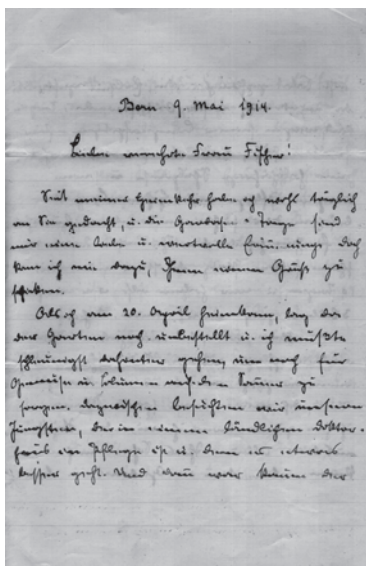 Bern 9. Mai 1914.
Liebe verehrte Frau Fischer!
Seit meiner Heimkehr habe ich wohl täglich
an Sie gedacht, u. die Tage sind
mir eine liebe u. wertvolle doch
kam ich nie dazu, Ihnen einen Gruß zu
schicken.
Als ich am 20. April heimkam, lag da
der Garten noch unbestellt u. ich mußte
schleunigst dahinter gehen, um noch für
Gemüse u. Blumen auf den Sommer zu
sorgen. dazwischen besuchten wir unsern
Jüngsten, der in einem ländlichen Doktor-
haus in Pflege ist u. dem es etwas
besser geht. Und dann war kaum der